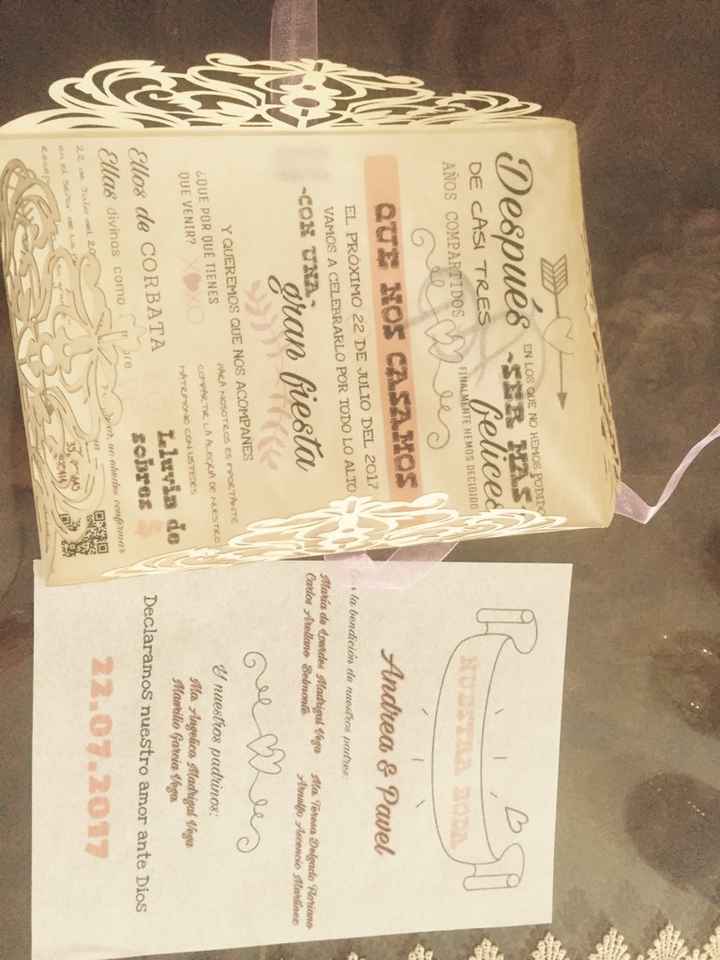 Después
DE CASI TRES
AÑOS COMPARTIDOS
EN LOS QUE NO HEMOS PODIDO
~SER MAS
felices
FINALMENTE HEMOS DECIDIDO
QUE NOS CASAMOS
EL PRÓXIMO 22 DE JULIO DEL 2017
VAMOS A CELEBRARLO POR TODO LO ALTO
~CON UNA~
gran fiesta
Y QUEREMOS QUE NOS ACOMPAÑES
¿QUE POR QUÉ TIENES
QUE VENIR?
PARA NOSOTROS ES IMPORTANTE
COMPARTIR LA ALEGRIA DE NUESTRO
MATRIMONIO CON USTEDES
Ellos de CORBATA
Ellas divinas como
Lluvia de
sobres
22 de Julio del 20
en el
confirmar
NUESTRA BODA
Andrea & Pavel
la bendición de nuestros padres:
Maria de Lourdes Madrigal Vega
Carlos Arellano Belmonte
Ma. Teresa Delgado Floriano
Arnulfo Ascencio Martinez
Y nuestros padrinos:
Ma. Angelica Madrigal Vega
Maurilio Garcia Vega
Declaramos nuestro amor ante Dios
22.07.2017